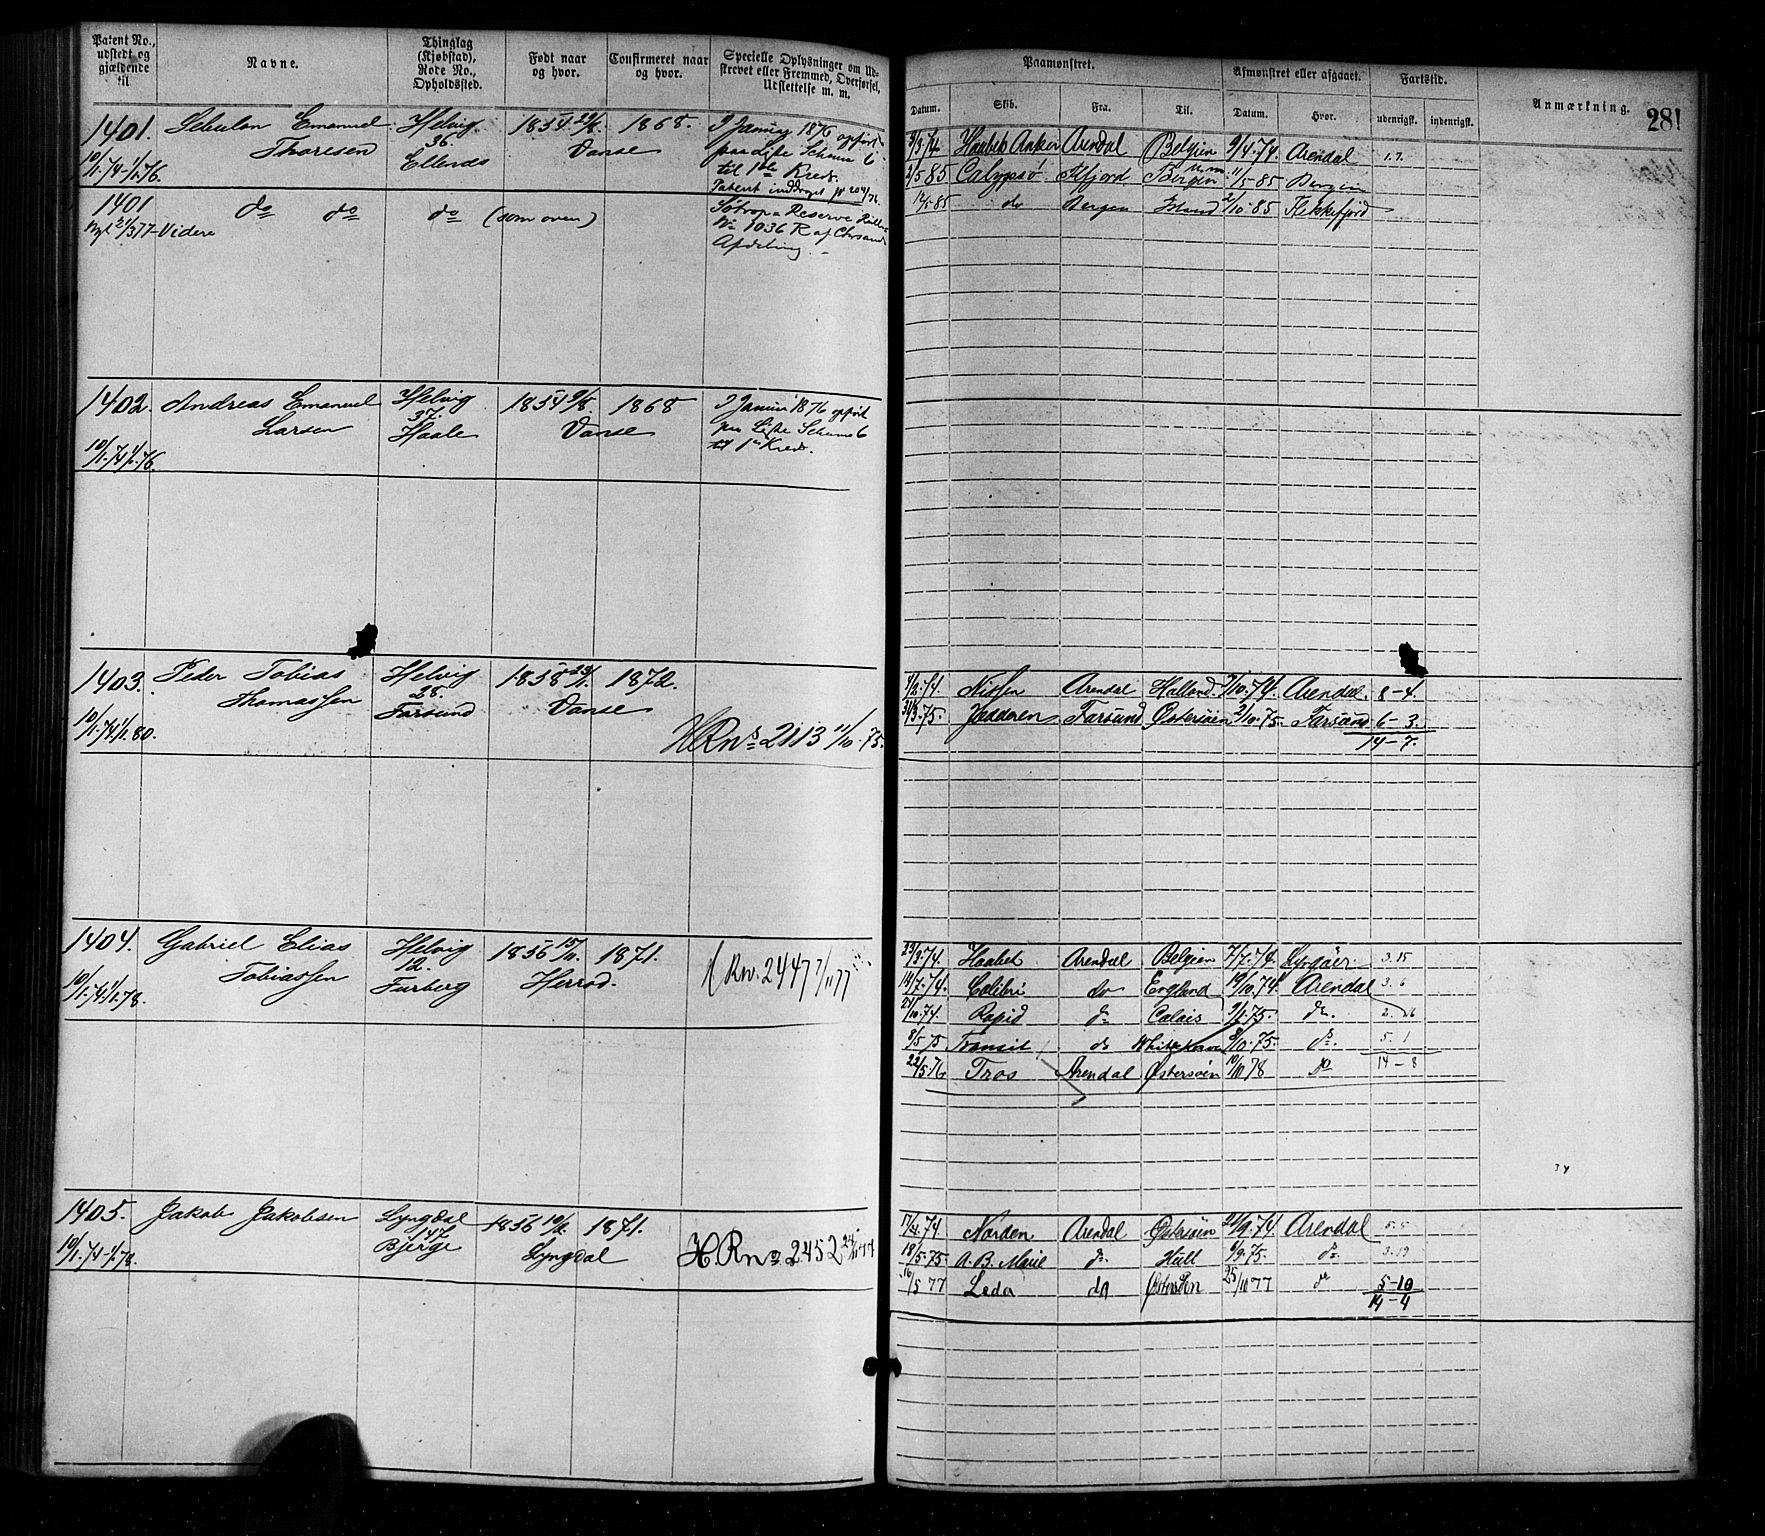 Patent No., udstedt og gjældende til
Navne.
Thinglag (Kjøbstad), Rode No., Opholdssted.
Født naar og hvor.
Confirmeret naar og hvor.
Specielle Oplysninger om Udskrevet eller Fremmed, Overførsel, Udslettelse m. m.
Paamønstret.
Datum. Skib. Fra. Til.
Afmønstret eller afgaaet.
Datum. Hvor.
Fartstid.
udenrigsk. indenrigsk.
Anmærkning.
281
1401. Sebulon Emanuel Helvig 1854 1868.
Thoresen 36. Vanse
10/1.74-1/1.76. Ellenæs
I Januar 1876 opført
paa Liste Schema 6
til 1ste Kreds.
1401 do do do (som oven)
Videre
Reserve Rulle
No 1036 R af Chrsands
Afdeling
Haabets Anker Arendal Belgien 9/4.74. Arendal 1.7.
2/5 85 Calypsø Ffjord Bergen 11/5-85 Bergen
do Bergen Island 2/10-85 Flekkefjord
1402. Andreas Emanuel Helvig 1854 9/8. 1868
Larsen 37. Vanse
10/1.74 1/1.76. Haale
I Januar 1876 opført
paa Liste Schema 6
til 1ste Kreds.
1403. Peder Tobias Helvig 1858 1872.
Thomassen 28. Vanse
10/1.74 1/1.80. Farsund
HRno 2113 11/10.75.
Nissen Arendal Holland 7/10.74. Arendal. 8-4.
31/3.75. Jædderen Farsund Østersøen 2/10.75. Farsund 6-3.
14-7.
1404. Gabriel Elias Helvig 1856 15/11. 1871.
Tobiassen 12. Herrød.
10/1.74 1/1.78. Furberg
Rno. 2447 7/11 77
23/3.74. Haabet Arendal Belgien 7/7.74. Lyngøer 3.15
14/7.74. Colibri do England 19/10.74. Arendal 3.6
27/10.74. Rapid do Calais do. 2.26
8/5.75 Transit do Whitehaven 8/10.75. do. 5.1
22/5.76. Tros Arendal Østersøen 10/10 78 do 14-8
1405. Jakob Jakobsen Lyngdal 1856 1871.
147 Lyngdal
10/1.74-1/1.78. Bjerge
H.Rno 2452
17/4.74. Norden Arendal Østersøen 21/9.74. Arendal 5.5
18/5.75. A. B. Marie do Hull 6/9.75. do 3.19
16/5 77 Leda do Østersøen 25/10 77 do 5-10
14-4